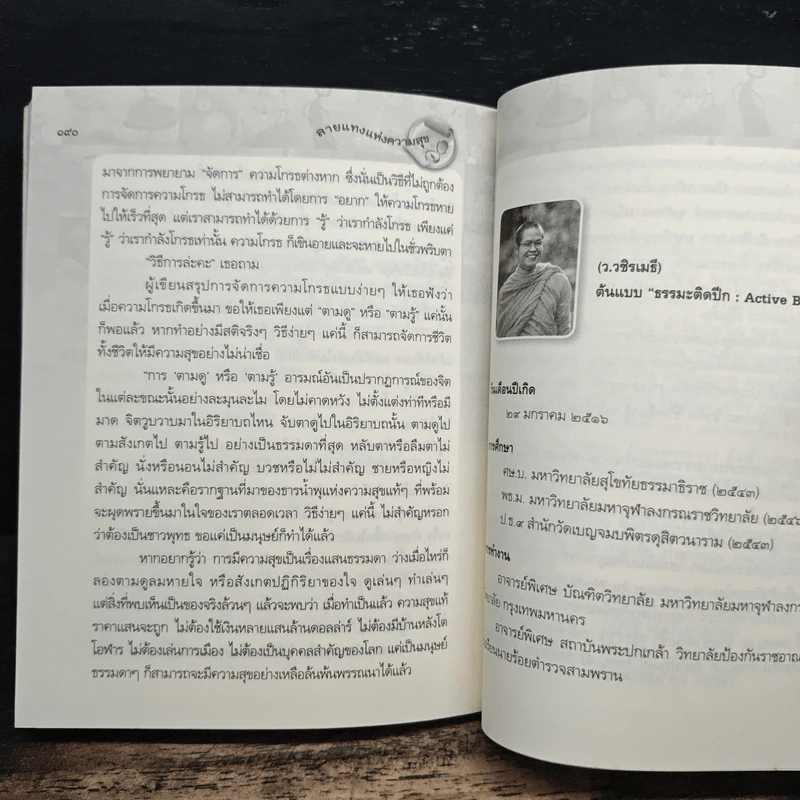 ๑๙๐
ลายแทงแห่งความสุข
มาจากการพยายาม “จัดการ” ความโกรธต่างหาก ซึ่งนั่นเป็นวิธีที่ไม่ถูกต้อง
การจัดการความโกรธ ไม่สามารถทำได้โดยการ “อยาก” ให้ความโกรธหาย
ไปให้เร็วที่สุด แต่เราสามารถทำได้ด้วยการ “รู้” ว่าเรากำลังโกรธ เพียงแค่
“รู้” ว่าเรากำลังโกรธเท่านั้น ความโกรธ ก็เขินอายและจะหายไปในชั่วพริบตา
“วิธีการล่ะคะ” เธอถาม
ผู้เขียนสรุปการจัดการความโกรธแบบง่ายๆ ให้เธอฟังว่า
เมื่อความโกรธเกิดขึ้นมา ขอให้เธอเพียงแต่ “ตามดู” หรือ “ตามรู้” แค่นั้น
ก็พอแล้ว หากทำอย่างมีสติจริงๆ วิธีง่ายๆ แค่นี้ ก็สามารถจัดการชีวิต
ทั้งชีวิตให้มีความสุขอย่างไม่น่าเชื่อ
“การ ‘ตามดู’ หรือ ‘ตามรู้’ อารมณ์อันเป็นปรากฏการณ์ของจิต
ในแต่ละขณะนั้นอย่างละมุนละไม โดยไม่คาดหวัง ไม่ตั้งแต่งท่าทีหรือมี
มาด จิตวูบวาบมาในอิริยาบถไหน จับตาดูไปในอิริยาบถนั้น ตามดูไป
ตามสังเกตไป ตามรู้ไป อย่างเป็นธรรมดาที่สุด หลับตาหรือลืมตาไม่
สำคัญ นั่งหรือนอนไม่สำคัญ บวชหรือไม่ไม่สำคัญ ชายหรือหญิงไม่
สำคัญ นั่นแหละคือรากฐานที่มาของธารน้ำพุแห่งความสุขแท้ๆ ที่พร้อม
จะผุดพรายขึ้นมาในใจของเราตลอดเวลา วิธีง่ายๆ แค่นี้ ไม่สำคัญหรอก
ว่าต้องเป็นชาวพุทธ ขอแค่เป็นมนุษย์ก็ทำได้แล้ว
หากอยากรู้ว่า การมีความสุขเป็นเรื่องแสนธรรมดา ว่างเมื่อไหร่ก็
ลองตามดูลมหายใจ หรือสังเกตปฏิกิริยาของใจ ดูเล่นๆ ทำเล่นๆ
แต่สิ่งที่พบเห็นเป็นของจริงล้วนๆ แล้วจะพบว่า เมื่อทำเป็นแล้ว ความสุขแท้
ราคาแสนจะถูก ไม่ต้องใช้เงินหลายแสนล้านดอลล่าร์ ไม่ต้องมีบ้านหลังโต
โอฬาร ไม่ต้องเล่นการเมือง ไม่ต้องเป็นบุคคลสำคัญของโลก แค่เป็นมนุษย์
ธรรมดาๆ ก็สามารถจะมีความสุขอย่างเหลือล้นพ้นพรรณนาได้แล้ว
(ว.วชิรเมธี)
ต้นแบบ “ธรรมะติดปีก : Active B
วันเดือนปีเกิด
๒๙ มกราคม ๒๕๑๖
การศึกษา
ศษ.บ. มหาวิทยาลัยสุโขทัยธรรมาธิราช (๒๕๔๓)
พธ.ม. มหาวิทยาลัยมหาจุฬาลงกรณราชวิทยาลัย (๒๕๔
ป.ธ.๙ สำนักวัดเบญจมบพิตรดุสิตวนาราม (๒๕๔๓)
การทำงาน
อาจารย์พิเศษ บัณฑิตวิทยาลัย มหาวิทยาลัยมหาจุฬาลงกร
ยาลัย กรุงเทพมหานคร
อาจารย์พิเศษ สถาบันพระปกเกล้า วิทยาลัยป้องกันราชอาณ
เรียนนายร้อยตำรวจสามพราน